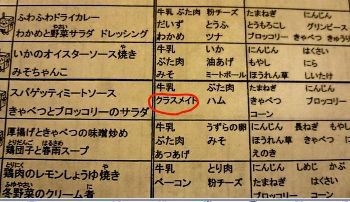 ふわふわドライカレー
わかめと野菜サラダ ドレッシング
牛乳 ぶた肉 粉チーズ
だいず とうふ
わかめ ツナ
たまねぎ にんじん
とうもろこし グリンピース
ブロッコリー きゃべつ きゅうり
いかのオイスターソース焼き
みそちゃんこ
牛乳 いか
ぶた肉 油あげ
みそ ミートボール
にんにく はくさい
もやし にら
ほうれん草 しいたけ
スパゲッティミートソース
きゃべつとブロッコリーのサラダ
牛乳 ぶた肉
クラスメイト ハム
たまねぎ にんじん
きゃべつ きゅうり
ブロッコリー
厚揚げときゃべつの味噌炒め
鶏団子と春雨スープ
牛乳 うずらの卵
ぶた肉 みそ
あつあげ
にんじん 長ねぎ もやし
きゃべつ ほうれん草
えのき
鶏肉のレモンしょうゆ焼き
冬野菜のクリーム煮
牛乳 とり肉
ベーコン 粉チーズ
にんじん しめじ かぶ
はくさい ブロッコリー